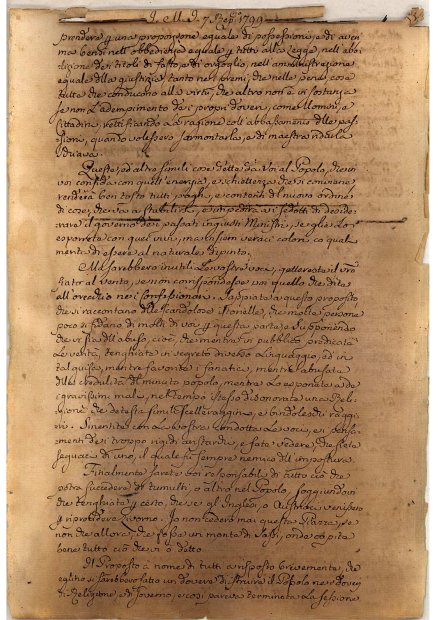 I. M. I. 7 Sett.e 1799
prendere p una proporzione equale di possessioni, e di averi
ma bensì nell'obbedienza equale p tutti alla Legge, nell'abo
lizione dei titoli di fasto, e di orgoglio, nell'amministrazione
equale della giustizia tanto nei premi, che nelle pene, cose
tutte che conducono alla virtù, che altro non è in sostanza
se non l'adempimento dei propri doveri, come Uomini, e
Cittadini, rettificando la ragione coll'abbassamento delle pas
sioni, quando volessero sormontarla, e di maestra ridurla
schiava.
Queste, ed altre simili cose dette da Voi al Popolo, che in
voi confida con quell'energia, e schiettezza che si conviene
renderà ben tosto tutti paghi, e contenti del nuovo ordine
di cose, che va a stabilirsi, e impedirà i sedotti di deside
rare il governo dei passati ingiusti Ministri, se glielo
esporrete con quei vivi, ma insiem veraci colori, co quali
merita di essere al naturale dipinto.
Ma sarebbero inutili le vostre voci, e gettereste il vro
fiato al vento, se non corrispondesse voi quello che dite
all'orecchio nei confessionari. Sappiate a questo proposito
che si raccontano delle scandolose Storielle, che molte persone
poco si fidano di molti di voi p questa parte, e supponendo
che vi sia dell'abuso, cioè, che mentre in pubblico predicate
la verità, tenghiate in segreto diverso linguaggio, ed in
tal guisa, mentre favorite i fanatici, mentre abusate
della credulità del minuto popolo, mentre lo esponete a de
i gravissimi mali, nel tempo stesso disonorate una Reli
gione che detesta simili scelleraggini, e bindolerie di raggiri
ri. Smentite con la vostra condotta le voci, e i pensa
menti dei troppo rigidi censori, e fate vedere, che siete
seguaci di uno, il quale fu sempre nemico dell'impostura.
Finalmente sarete voi responsabili di tutto ciò che
potrà succedere di tumulti, o altro nel Popolo, soggiungendo
che tenghiate p certo, che se gl'Inglesi, o Austriaci venissero
p riprendere Livorno: Io non cederò mai questa Piazza, se
non che allora, che fosse un monte di sassi, onde capite
bene tutto ciò che vi ò detto.
Il Proposto a nome di tutti a risposto brevemente, che
eglino si sarebbero fatto un dovere di istruire il Popolo nei doveri
di Religione, e di Governo, e così pareva terminata la sessione